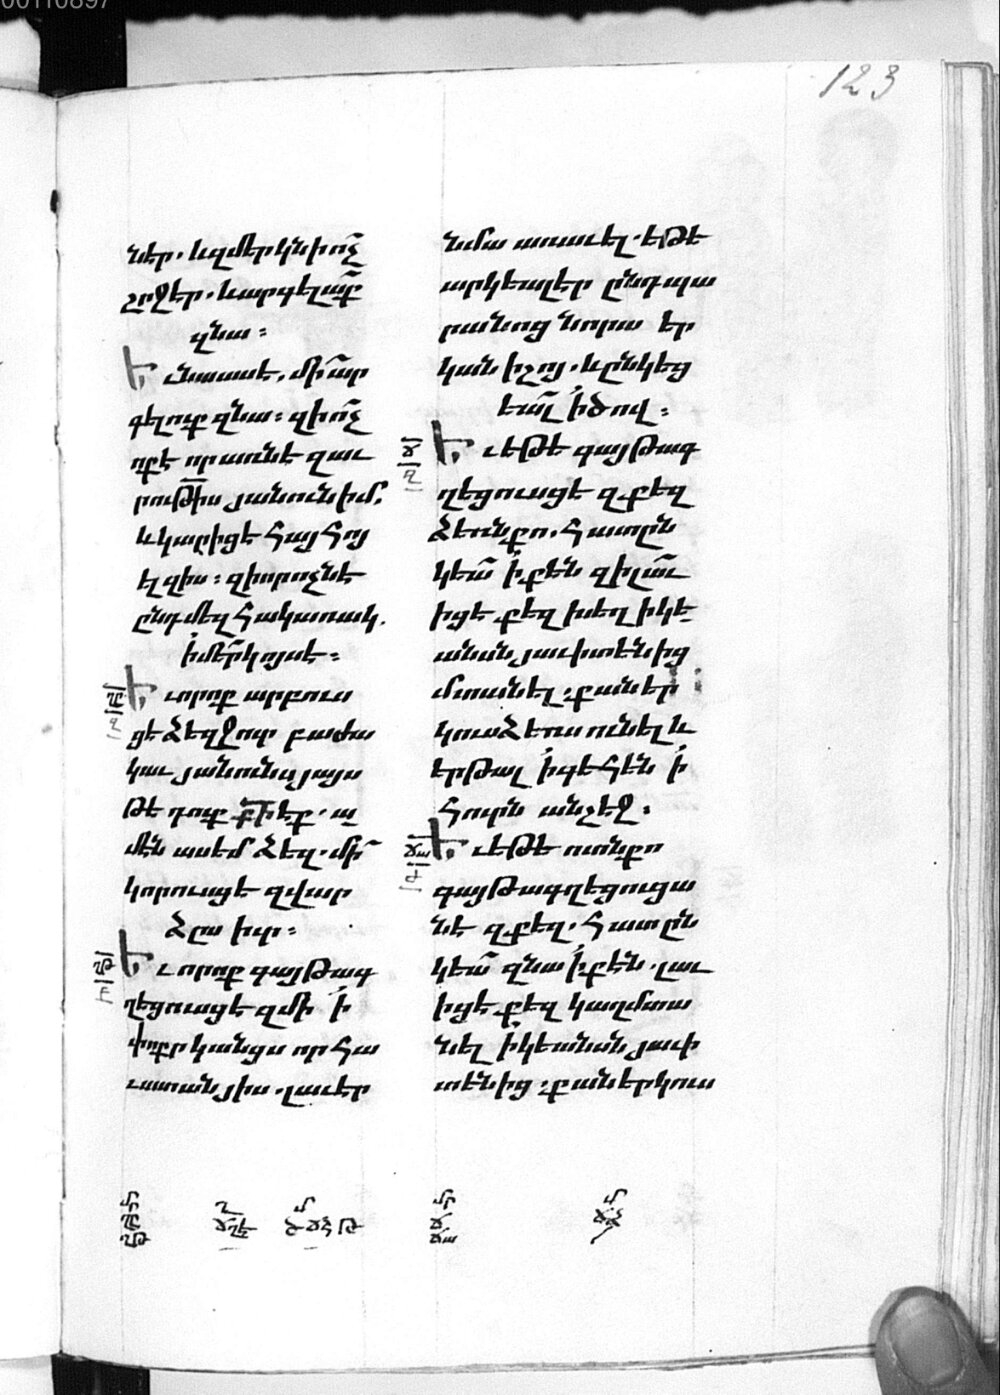 123
նէր. և զմերկնի ո՛չ
շրջէր. և արգելա՛ք
զնա։
Եւ նա ասէ. մի՛ ար
գելուք զնա։ զի ո՛չ
ոք է որ առնէ զաւ
րութի՛ս յանուն իմ.
և կարիցէ հայհոյ
ել զիս։ զի որ ոչն է
ընդ մեզ հակառակ.
ի մե՛ր կոյս է։
Եւ որ ոք արբուս
ցէ ձեզ ջուր բաժա
կաւ յանուն յայս
թէ դուք ք՛ի էք. ա
մէն ասեմ ձեզ. մի՛
կորուսցէ զվար
ձըս իւր։
Եւ որ ոք գայթագ
ղեցուսցէ զմի ի՛
փոքրկանցս որ հա
ւատան յիս. լաւ էր
նմա առաւել. եթէ
արկեալ էր ընդ պա
րանոց նորա եր
կան իշոյ. և ընկեց
եա՛լ ի ծով։
Եւ եթէ գայթագ
ղեցուսցէ զքեզ
ձեռն քո. հատ ըն
կեա՛ ի քէն զի լա՛ւ
իցէ քեզ խեղ ի կե
անսն յաւիտենից
մտանել. քան եր
կուս ձեռս ունել և
երթալ ի գեհէն ի
հուրն անշէջ։
Եւ եթէ ոտն քո
գայթագղեցուցա
նէ զքեզ. հատ ըն
կեա՛ զնա ի քէն. լաւ
իցէ քեզ կաղ մտա
նել ի կեանսն յաւի
տենից. քան երկուս